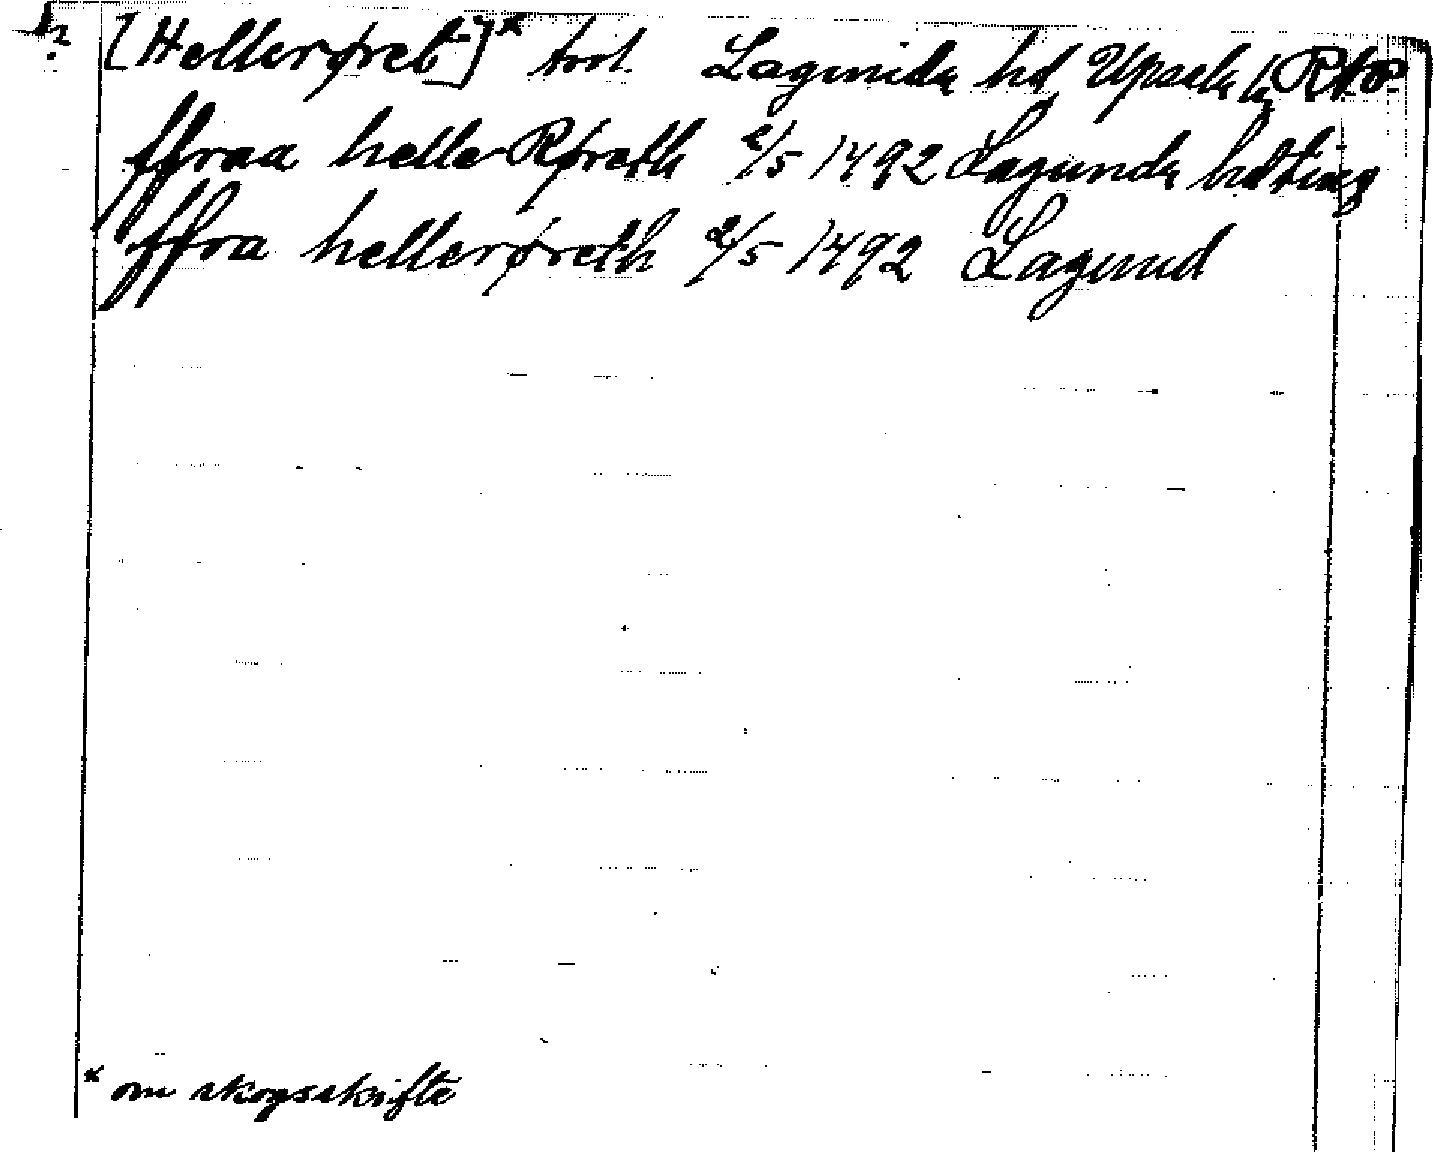 [Hellerøret-]* torl. Lagunda hd Upsala l. RAp
ffraa helleRøreth 2/5 1492 Lagunda hdting
ffra hellerøreth 2/5 1492 Lagund
* om skogsskifte